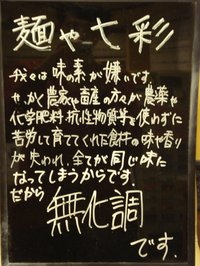 麺や七彩
我々は味の素が嫌いです。
せっかく農家や畜産の方々が農薬や
化学肥料、抗性物質等を使わずに
苦労して育ててくれた食材の味や香り
が失われ、全てが同じ味に
なってしまうからです。
だから
無化調
です。